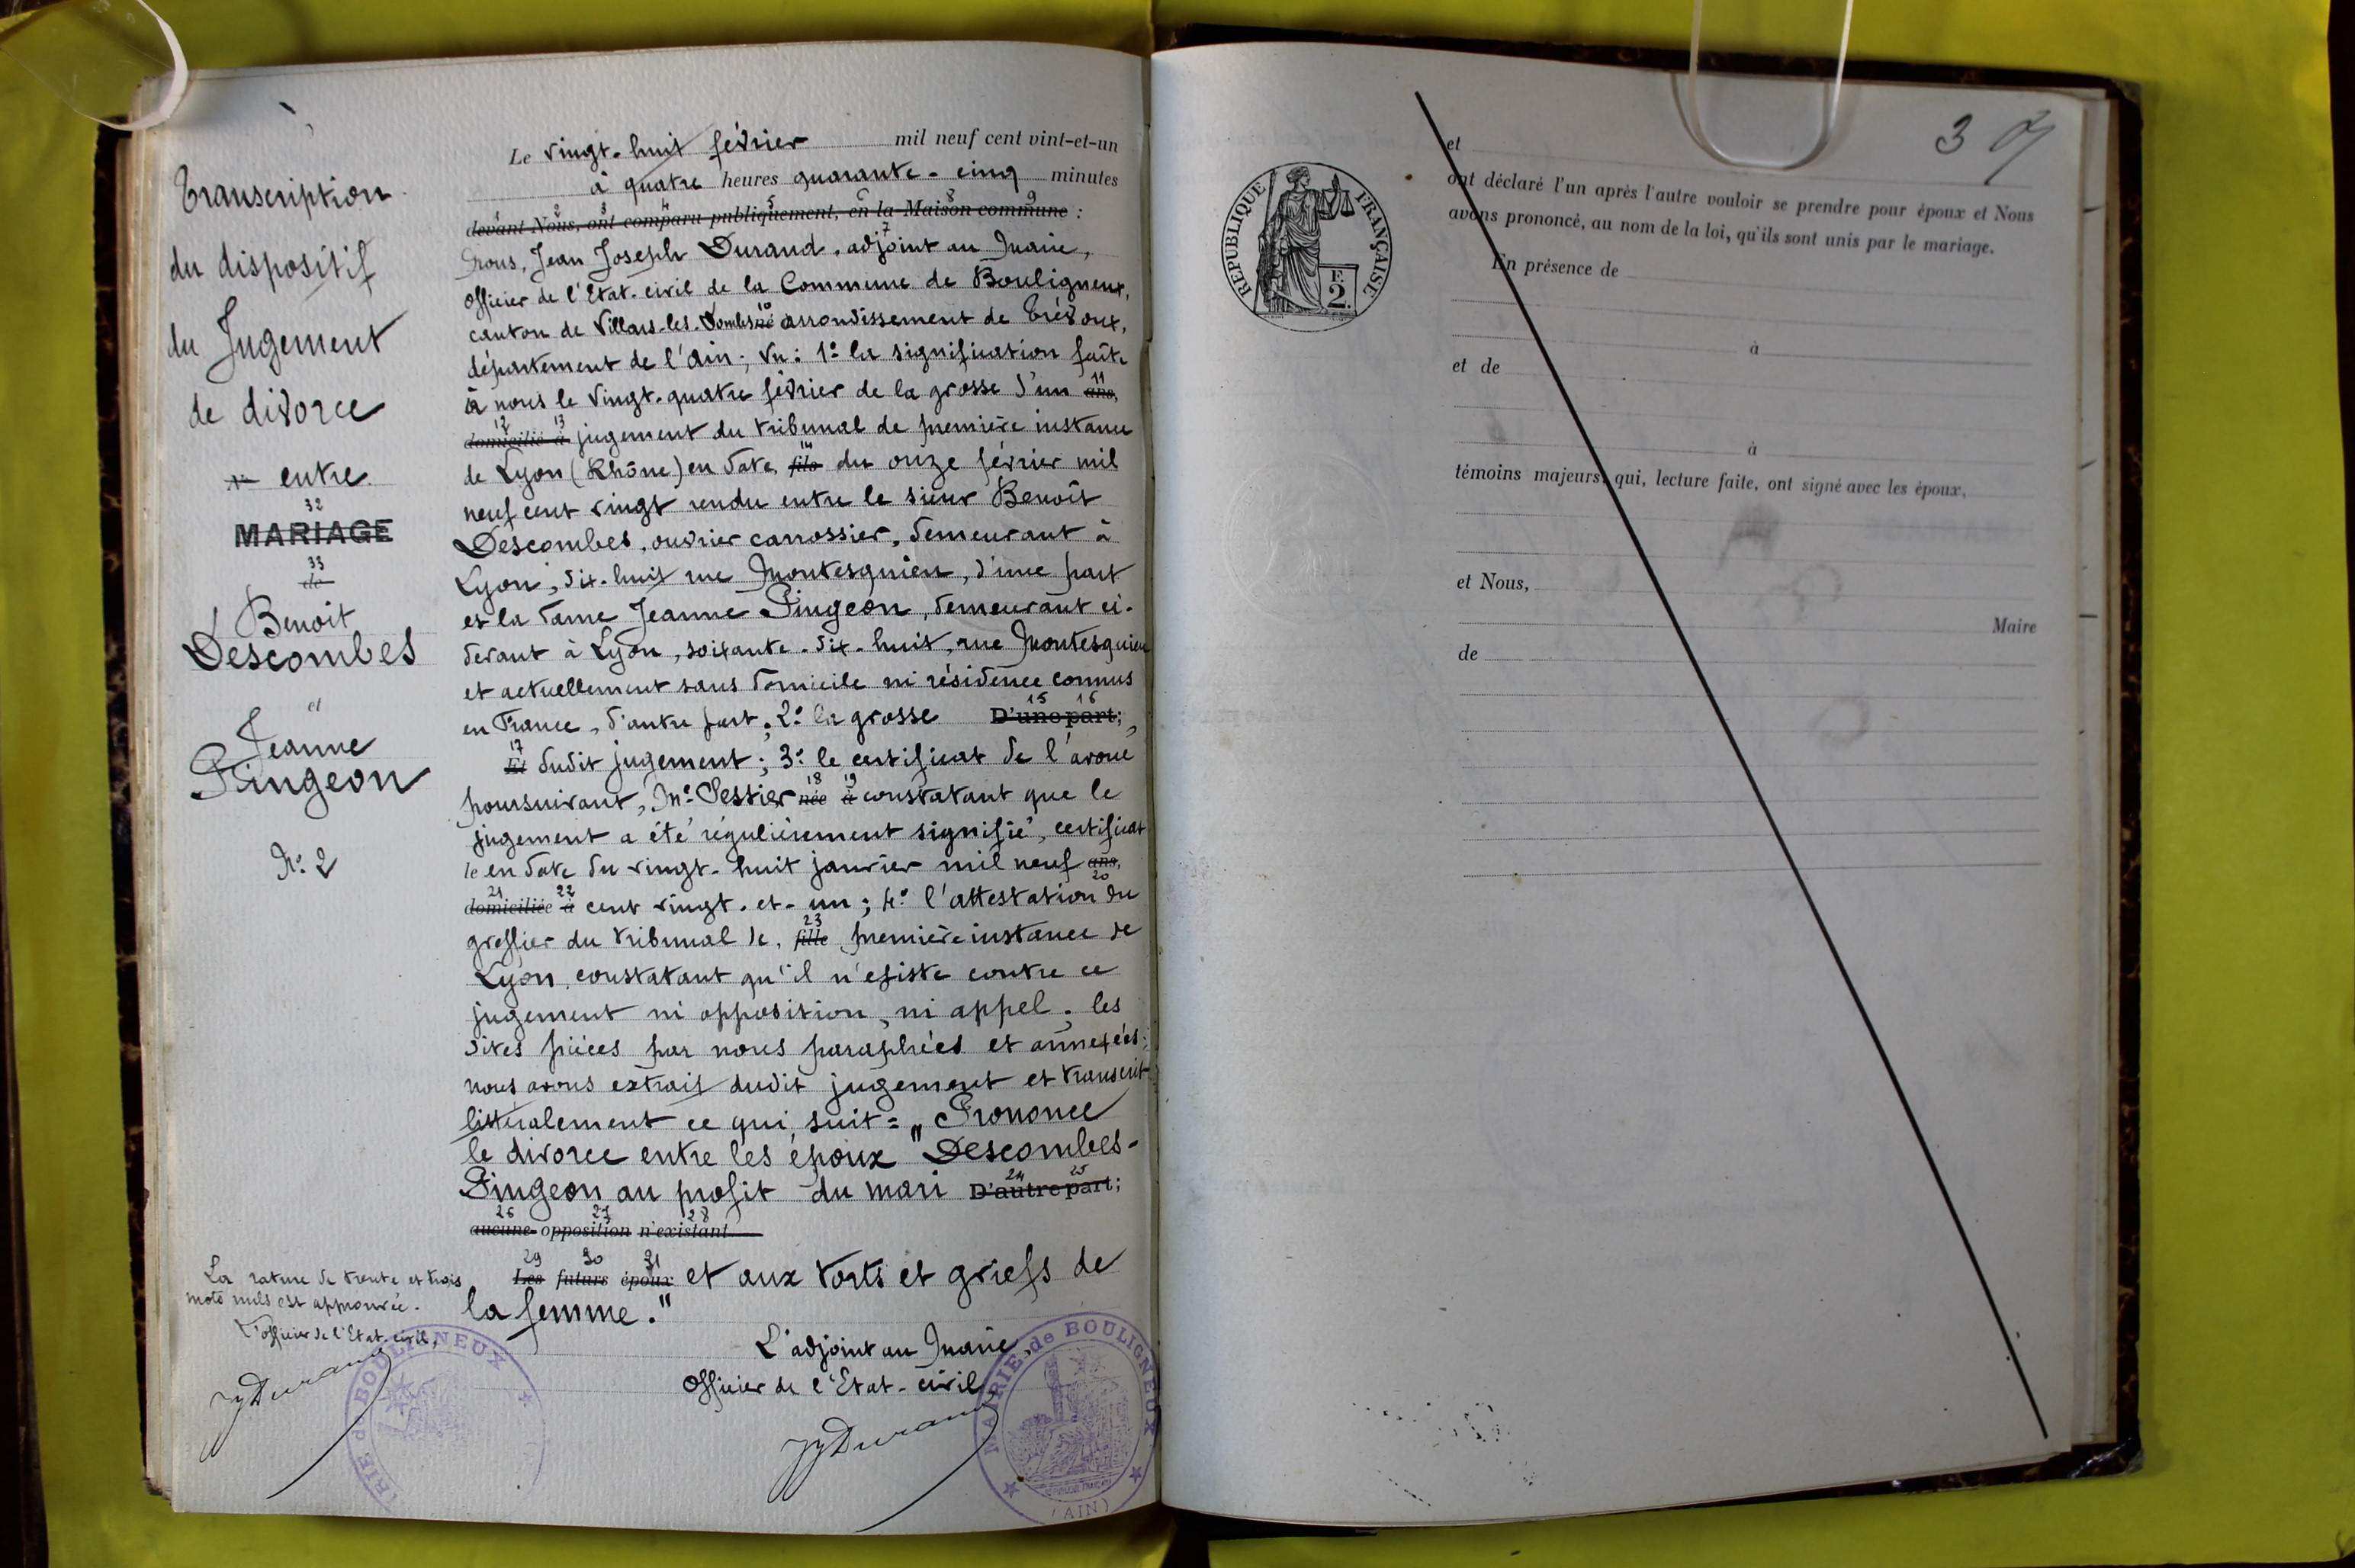 Transcription
du dispositif
du Jugement
de divorce
entre
32
MARIAGE
33
de
Benoit
Descombes
et
Jeanne
Pingeon
N° 2
La rature de trente et trois
mots nuls est approuvée.
L'officier de l'Etat-civil,
JJDurand
MAIRIE de BOULIGNEUX
Le vingt-huit février mil neuf cent vint-et-un
à quatre heures quarante-cinq minutes
2 3 4 5 6 7 8 9
devant Nous, ont comparu publiquement, en la Maison commune :
Nous, Jean Joseph Durand, adjoint au Maire,
Officier de l'Etat-civil de la Commune de Bouligneux,
canton de Villars-les-Dombes né arrondissement de Trévoux,
département de l'Ain; vu: 1° la signification faite
à nous le vingt-quatre février de la grosse d'un ans,
domicilié à jugement du tribunal de première instance
de Lyon (Rhône) en date, fils du onze février mil
neuf cent vingt rendu entre le sieur Benoît
Descombes, ouvrier carrossier, demeurant à
Lyon, dix-huit rue Montesquieu, d'une part
et la dame Jeanne Pingeon, demeurant ci-
devant à Lyon, soixante-dix-huit, rue Montesquieu
et actuellement sans domicile ni résidence connus
en France, d'autre part; 2° la grosse D'une part;
Et dudit jugement; 3° le certificat de l'avoué
poursuivant, Me Pessier née à constatant que le
jugement a été régulièrement signifié, certificat
le en date du vingt-huit janvier mil neuf ans,
domiciliée à cent vingt-et-un; 4° l'attestation du
greffier du tribunal de, fille première instance de
Lyon, constatant qu'il n'existe contre ce
jugement ni opposition, ni appel; les
dites pièces par nous paraphées et annexées;
nous avons extrait dudit jugement et transcrit
littéralement ce qui suit = „ Prononce
le divorce entre les époux " Descombes-
Pingeon au profit du mari D'autre part;
26 27 28
aucune opposition n'existant
29 30 31
Les futurs époux et aux torts et griefs de
la femme."
L'adjoint au Maire,
Officier de l'Etat-civil
JJDurand
MAIRIE de BOULIGNEUX
(AIN)
3
RÉPUBLIQUE FRANÇAISE
F.
2.
et
ont déclaré l'un après l'autre vouloir se prendre pour époux et Nous
avons prononcé, au nom de la loi, qu'ils sont unis par le mariage.
En présence de
à
et de
à
témoins majeurs, qui, lecture faite, ont signé avec les époux,
et Nous,
Maire
de